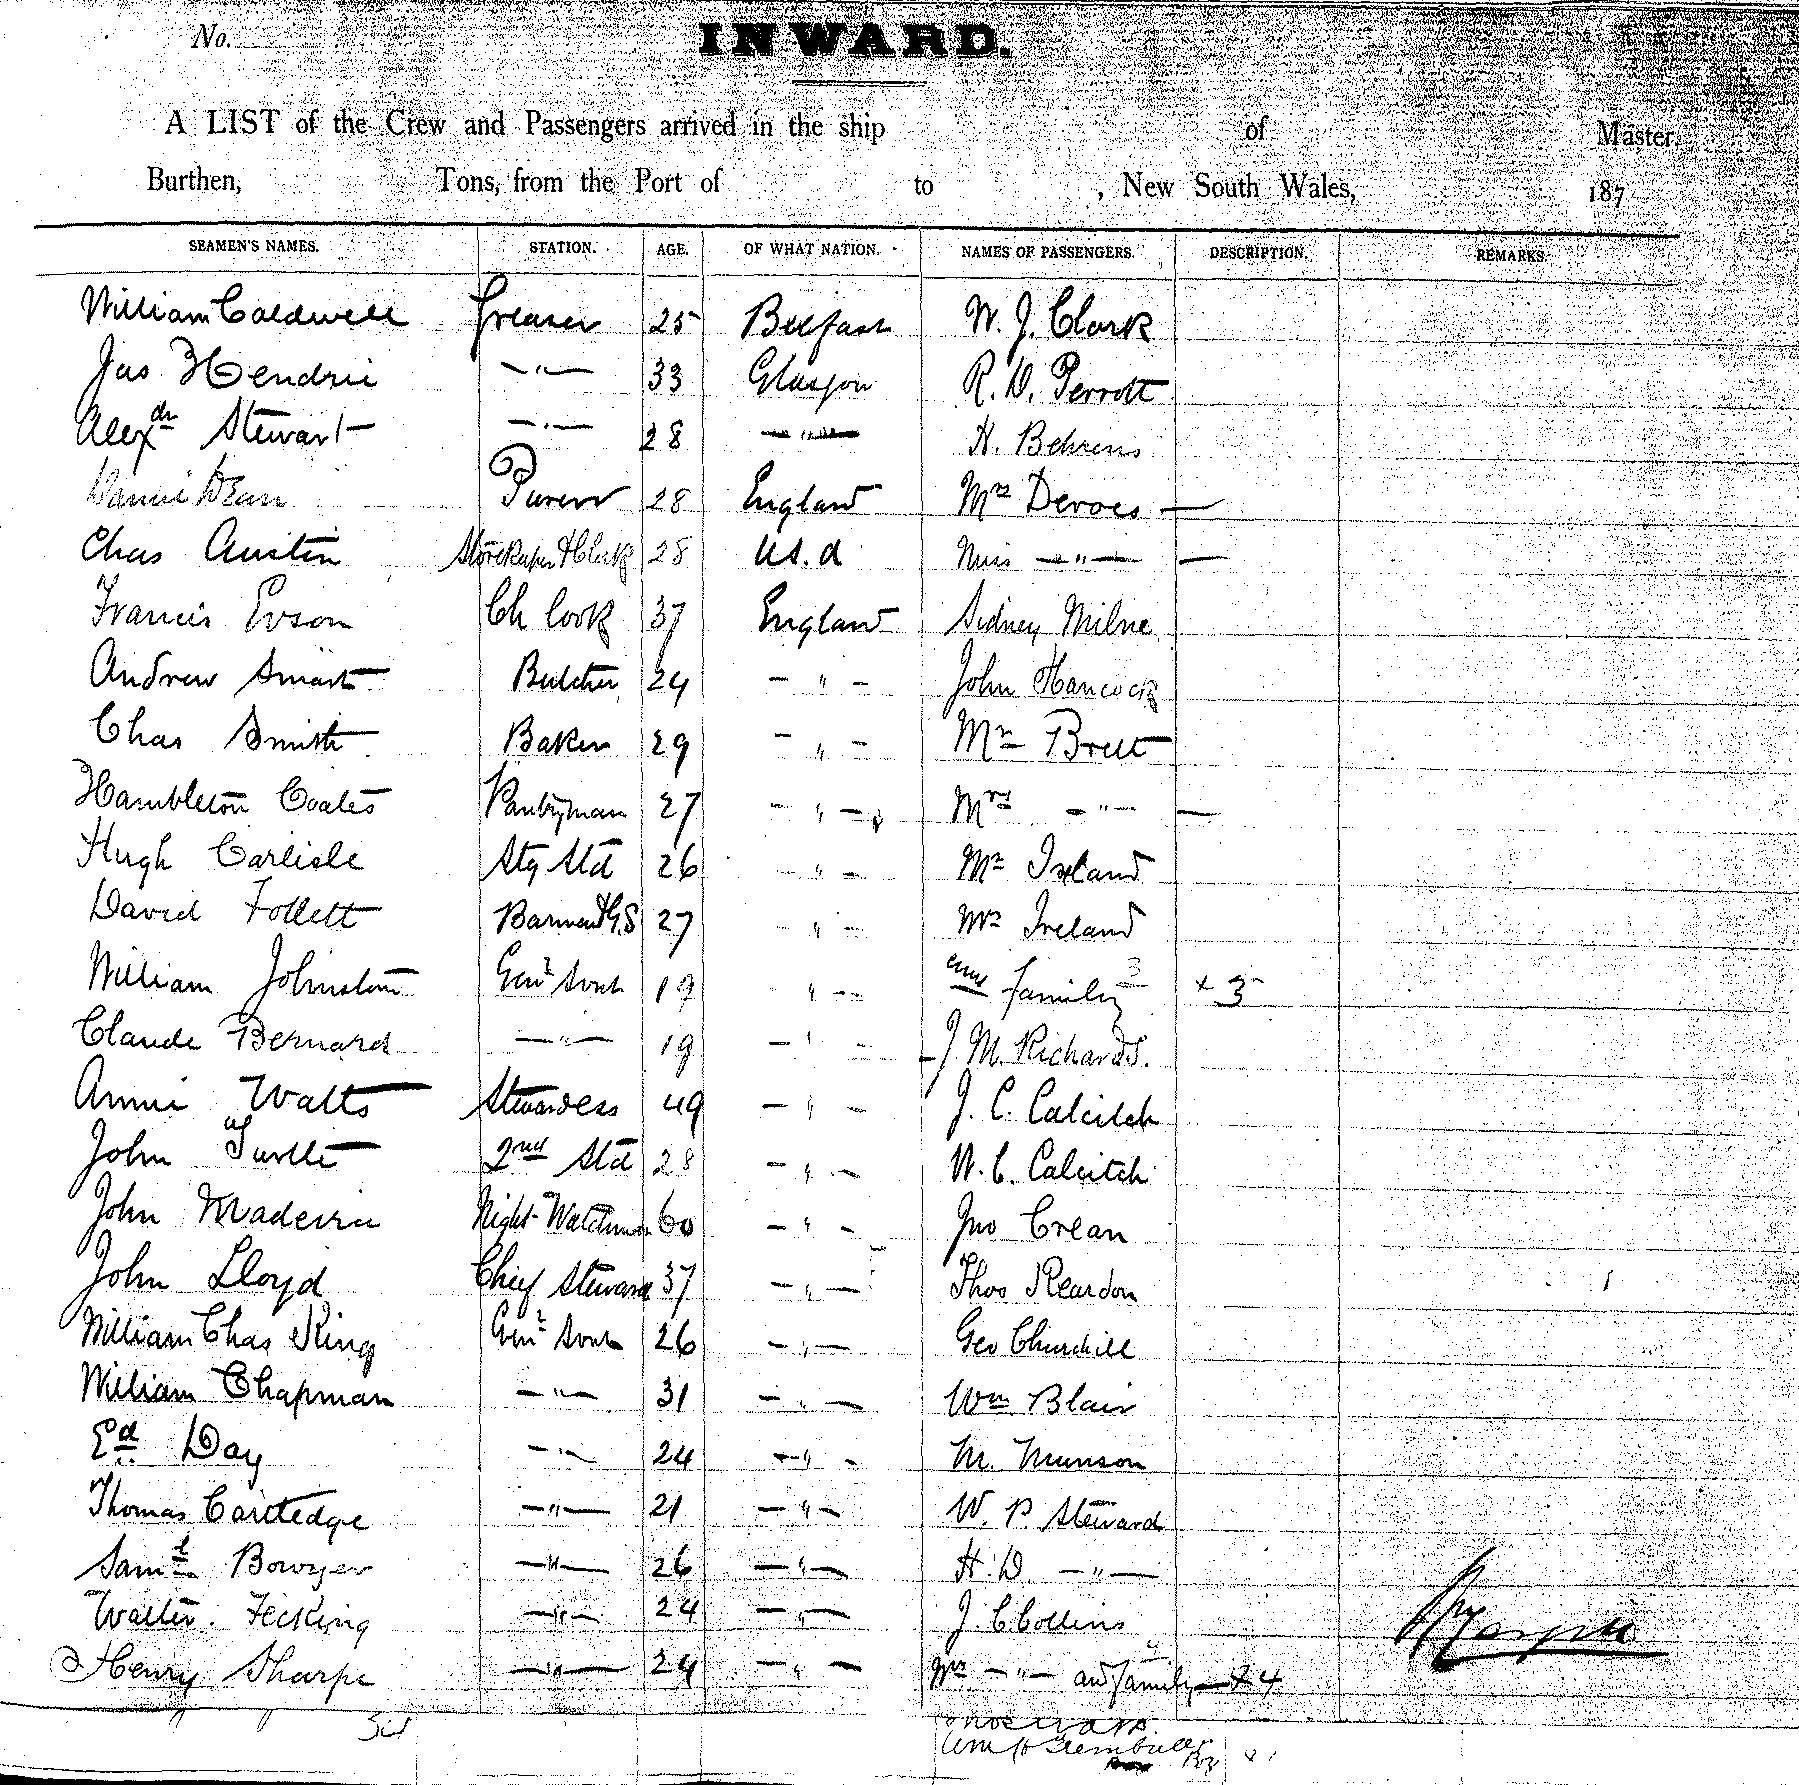 No.
INWARD.
A LIST of the Crew and Passengers arrived in the ship of Master.
Burthen, Tons, from the Port of to , New South Wales, 187
SEAMEN'S NAMES. STATION. AGE. OF WHAT NATION. NAMES OF PASSENGERS. DESCRIPTION. REMARKS.
William Caldwell Greaser 25 Belfast W. J. Clark
Jas Hendrie —"— 33 Glasgow R. D. Perrott
Alexdr Stewart —"— 28 —"— H. Behrens
Daniel Dean Purser 28 England Mrs Devoes —
Chas Austin Storekeeper & Clerk 28 U.S.A Miss —"— —
Francis Evson Ch Cook 37 England Sidney Milne
Andrew Smart Butcher 24 - " - John Hancock
Chas Smith Baker 29 - " - Mr Brett
Hambleton Coates Pantryman 27 - " - Mrs - " - —
Hugh Carlisle Stg Std 26 - " - Mr Ireland
David Follett Barman & G.S 27 - " - Mrs Ireland
William Johnston Genl Servt 19 " - family 3 x 3
Claude Bernard —"— 19 - " - J. M. Richards.
Annie Watts Stewardess 49 - " - J. C. Calcitch
John Turtle 2nd Std 28 - " - W. C. Calcitch
John Madeiru Night-Watchman 60 - " - Jno Crean
John Lloyd Chief Steward 37 - " - Thos Reardon
William Chas King Genl Servt 26 - " - Geo Churchill
William Chapman —"— 31 - " - Wm Blair
Ed Day - " - 24 - " - M. Munson
Thomas Cartledge —"— 21 - " - W. P. Steward
Saml Bowyer —"— 26 - " - H. D. —"—
Walter. Fecking —"— 24 - " - J. C Collins
Henry Sharpe —"— 24 - " - Mrs —"— and family — x 4